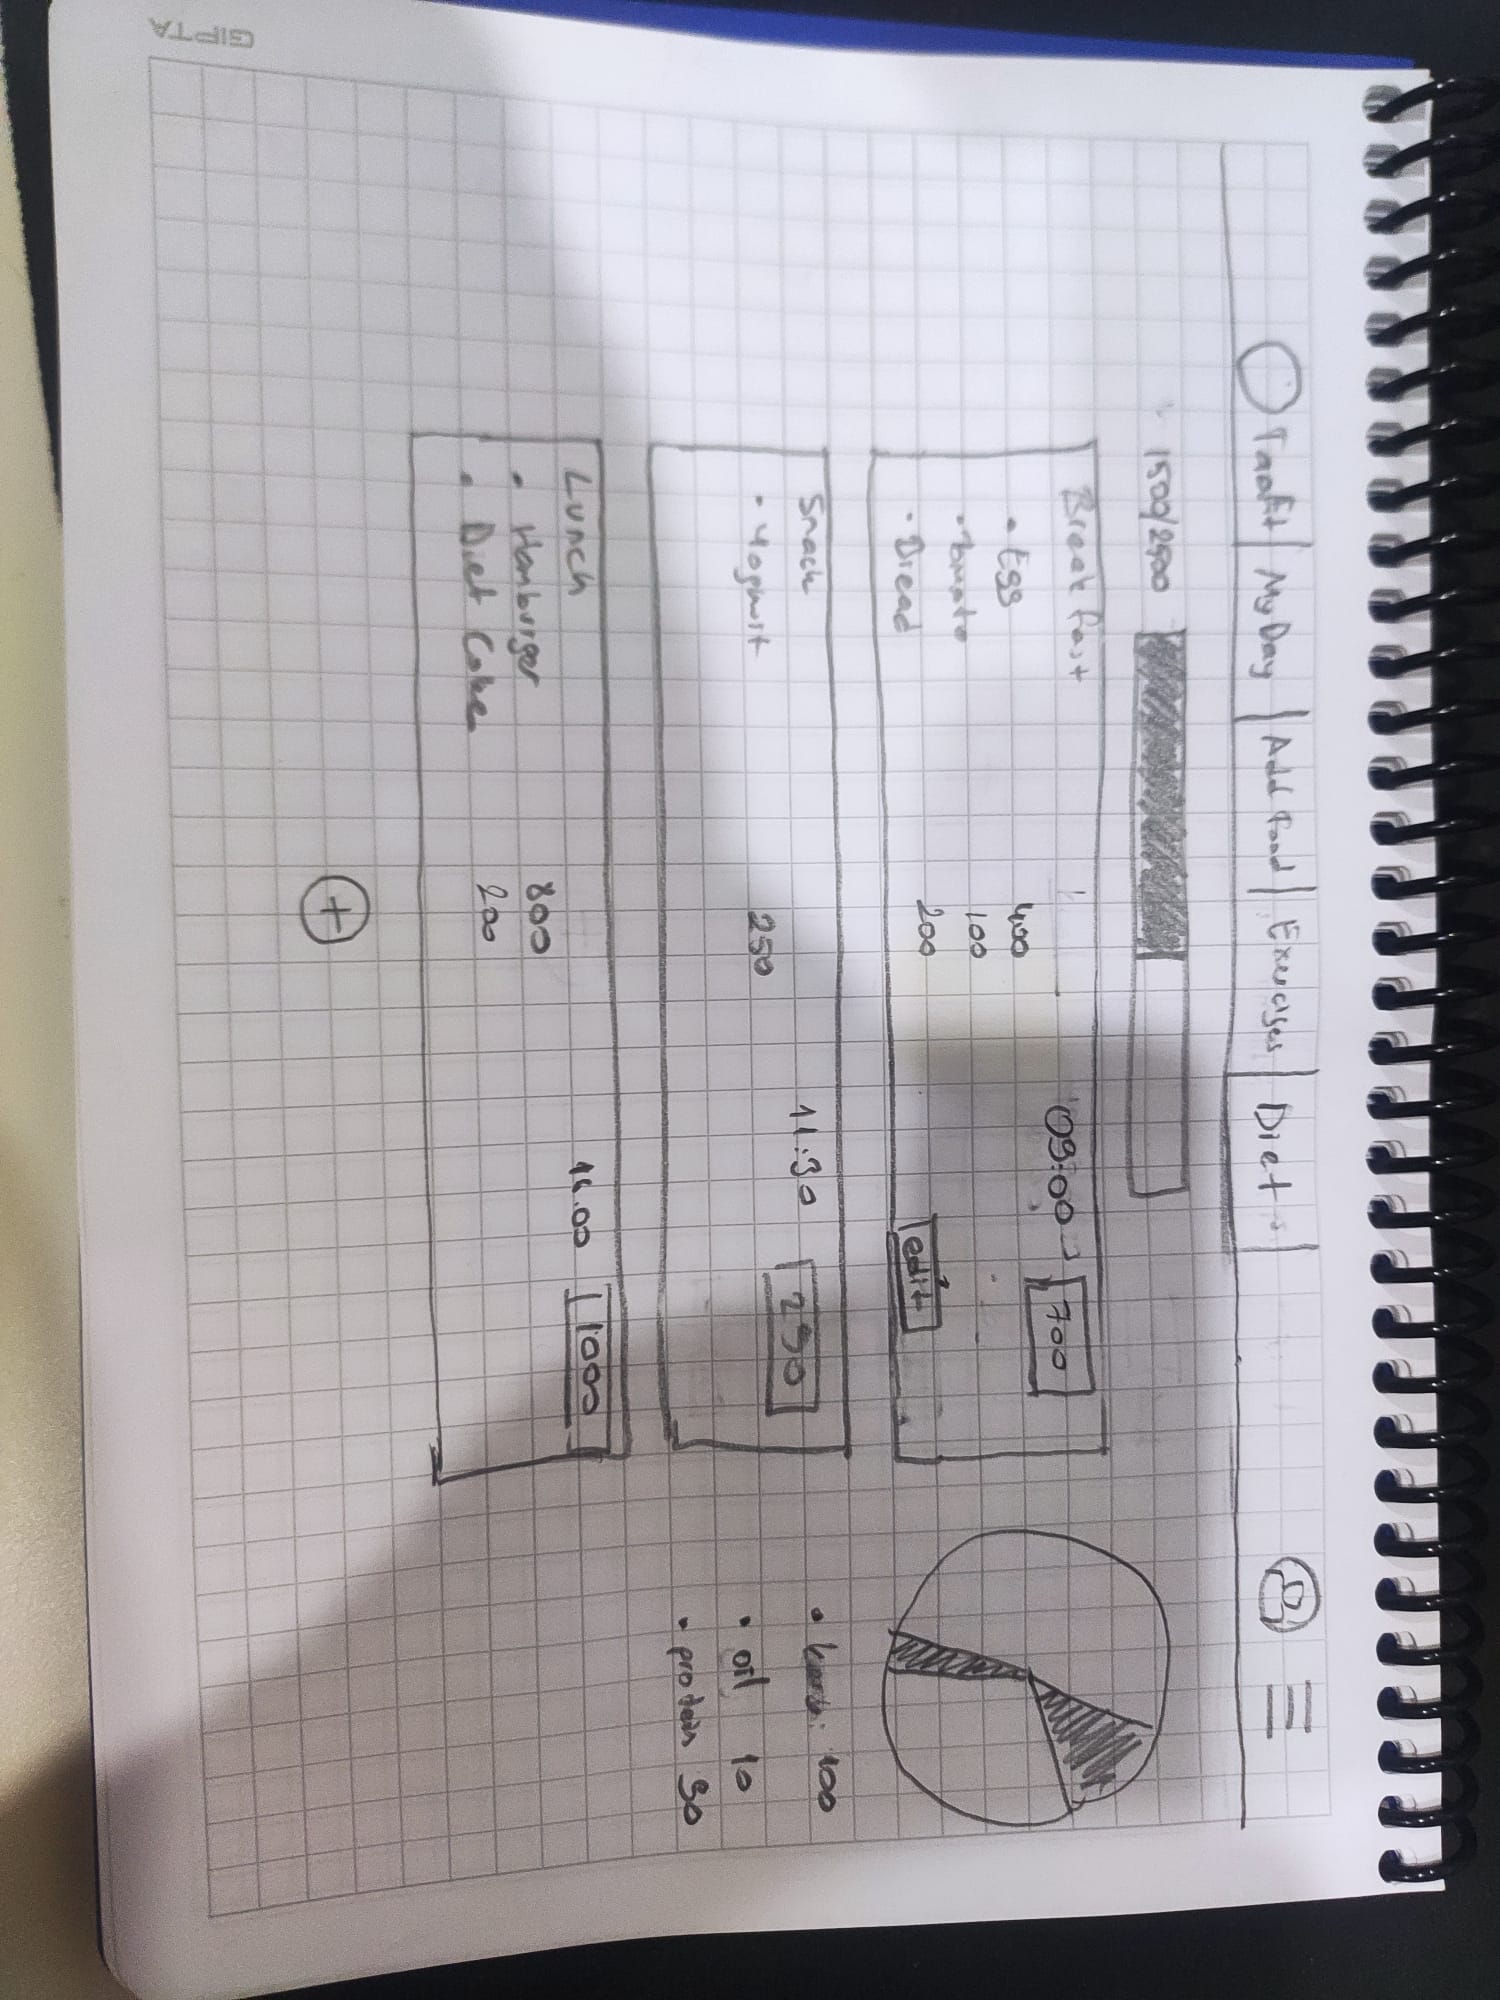 Taafit | My Day | Add Food | Exercises | Diets |
1500/2500
Breakfast 09:00 700
• Egg 400
• tomato 100
• Bread 200
edit
Snack 11:30 250
• Yoghurt 250
Lunch 14.00 1000
• Hamburger 800
• Diet Coke 200
+
: 100
• oil 10
• protein 30
GIPTA